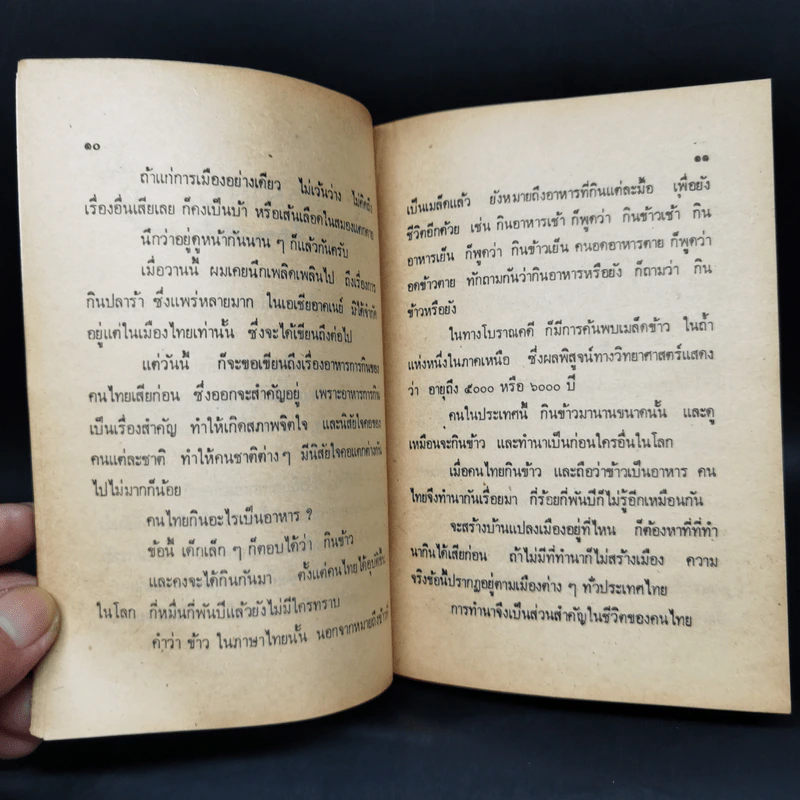 ๑๐
ถ้าแก่การเมืองอย่างเดียว ไม่เว้นว่าง ไม่คิดถึง
เรื่องอื่นเสียเลย ก็คงเป็นบ้า หรือเส้นเลือดในสมองแตกตาย
นึกว่าอยู่ดูหน้ากันนาน ๆ ก็แล้วกันครับ
เมื่อวานนี้ ผมเคยนึกเพลิดเพลินไป ถึงเรื่องการ
กินปลาร้า ซึ่งแพร่หลายมาก ในเอเซียอาคเนย์ มิได้จำกัด
อยู่แต่ในเมืองไทยเท่านั้น ซึ่งจะได้เขียนถึงต่อไป
แต่วันนี้ ก็จะขอเขียนถึงเรื่องอาหารการกินของ
คนไทยเสียก่อน ซึ่งออกจะสำคัญอยู่ เพราะอาหารการกิน
เป็นเรื่องสำคัญ ทำให้เกิดสภาพจิตใจ และนิสัยใจคอของ
คนแต่ละชาติ ทำให้คนชาติต่างๆ มีนิสัยใจคอแตกต่างกัน
ไปไม่มากก็น้อย
คนไทยกินอะไรเป็นอาหาร ?
ข้อนี้ เด็กเล็ก ๆ ก็ตอบได้ว่า กินข้าว
และคงจะได้กินกันมา ตั้งแต่คนไทยได้อุบัติขึ้น
ในโลก กี่หมื่นกี่พันปีแล้วยังไม่มีใครทราบ
คำว่า ข้าว ในภาษาไทยนั้น นอกจากหมายถึงข้าวที่
๑๑
เป็นเมล็ดแล้ว ยังหมายถึงอาหารที่กินแต่ละมื้อ เพื่อยัง
ชีวิตอีกด้วย เช่น กินอาหารเช้า ก็พูดว่า กินข้าวเช้า กิน
อาหารเย็น ก็พูดว่า กินข้าวเย็น คนอดอาหารตาย ก็พูดว่า
อดข้าวตาย ทักถามกันว่ากินอาหารหรือยัง ก็ถามว่า กิน
ข้าวหรือยัง
ในทางโบราณคดี ก็มีการค้นพบเมล็ดข้าว ในถ้ำ
แห่งหนึ่งในภาคเหนือ ซึ่งผลพิสูจน์ทางวิทยาศาสตร์แสดง
ว่า อายุถึง ๕๐๐๐ หรือ ๖๐๐๐ ปี
คนในประเทศนี้ กินข้าวมานานขนาดนั้น และดู
เหมือนจะกินข้าว และทำนาเป็นก่อนใครอื่นในโลก
เมื่อคนไทยกินข้าว และถือว่าข้าวเป็นอาหาร คน
ไทยจึงทำนากันเรื่อยมา กี่ร้อยกี่พันปีก็ไม่รู้อีกเหมือนกัน
จะสร้างบ้านแปลงเมืองอยู่ที่ไหน ก็ต้องหาที่ที่ทำ
นากินได้เสียก่อน ถ้าไม่มีที่ทำนาก็ไม่สร้างเมือง ความ
จริงข้อนี้ปรากฏอยู่ตามเมืองต่าง ๆ ทั่วประเทศไทย
การทำนาจึงเป็นส่วนสำคัญในชีวิตของคนไทย